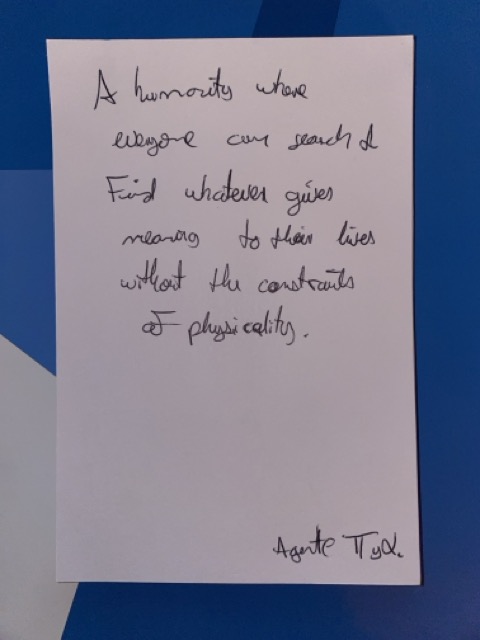 A humanity where
everyone can search &
Find whatever gives
meaning to their lives
without the constraints
of physicality.
Agente Πyα.